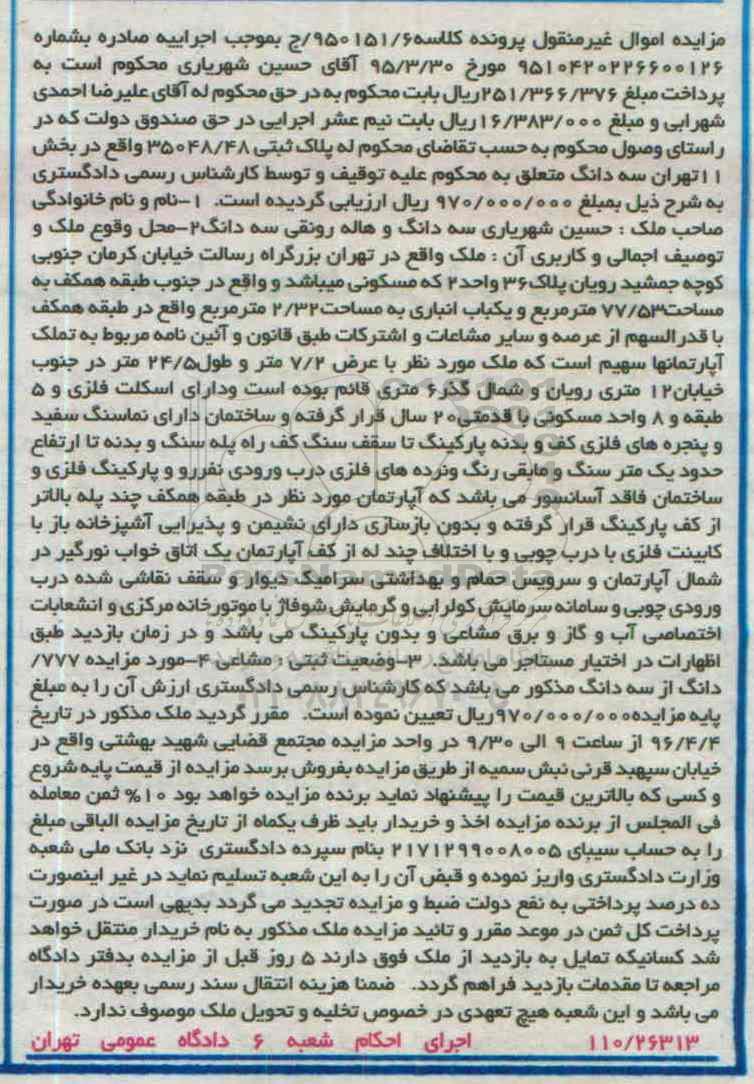 مزایده اموال غیرمنقول پرونده کلاسه۹۵۰۱۵۱/۶/ج بموجب اجراییه صادره بشماره
۹۵۱۰۴۲۰۲۲۶۶۰۰۱۲۶ مورخ ۹۵/۳/۳۰ آقای حسین شهریاری محکوم است به
پرداخت مبلغ ۲۵۱/۳۶۶/۳۷۶ریال بابت محکوم به در حق محکوم له آقای علیرضا احمدی
شهرابی و مبلغ ۱۶/۳۸۳/۰۰۰ریال بابت نیم عشر اجرایی در حق صندوق دولت که در
راستای وصول محکوم به حسب تقاضای محکوم له پلاک ثبتی ۳۵۰۴۸/۴۸ واقع در بخش
۱۱تهران سه دانگ متعلق به محکوم علیه توقیف و توسط کارشناس رسمی دادگستری
به شرح ذیل بمبلغ ۹۷۰/۰۰۰/۰۰۰ ریال ارزیابی گردیده است. ۱-نام و نام خانوادگی
صاحب ملک : حسین شهریاری سه دانگ و هاله رونقی سه دانگ۲-محل وقوع ملک و
توصیف اجمالی و کاربری آن : ملک واقع در تهران بزرگراه رسالت خیابان کرمان جنوبی
کوچه جمشید رویان پلاک۳۶ واحد۲ که مسکونی میباشد و واقع در جنوب طبقه همکف به
مساحت۷۷/۵۳ مترمربع و یکباب انباری به مساحت۲/۳۲ مترمربع واقع در طبقه همکف
با قدرالسهم از عرصه و سایر مشاعات و اشترکات طبق قانون و آئین نامه مربوط به تملک
آپارتمانها سهیم است که ملک مورد نظر با عرض ۷/۲ متر و طول۲۴/۵ متر در جنوب
خیابان۱۲ متری رویان و شمال گذر۶ متری قائم بوده است ودارای اسکلت فلزی و ۵
طبقه و ۸ واحد مسکونی با قدمتی۲۰ سال قرار گرفته و ساختمان دارای نماسنگ سفید
و پنجره های فلزی کف و بدنه پارکینگ تا سقف سنگ کف راه پله سنگ و بدنه تا ارتفاع
حدود یک متر سنگ و مابقی رنگ ونرده های فلزی درب ورودی نفررو و پارکینگ فلزی و
ساختمان فاقد آسانسور می باشد که آپارتمان مورد نظر در طبقه همکف چند پله بالاتر
از کف پارکینگ قرار گرفته و بدون بازسازی دارای نشیمن و پذیرایی آشپزخانه باز با
کابینت فلزی با درب چوبی و با اختلاف چند له از کف آپارتمان یک اتاق خواب نورگیر در
شمال آپارتمان و سرویس حمام و بهداشتی سرامیک دیوار و سقف نقاشی شده درب
ورودی چوبی و سامانه سرمایش کولر ابی و گرمایش شوفاژ با موتورخانه مرکزی و انشعابات
اختصاصی آب و گاز و برق مشاعی و بدون پارکینگ می باشد و در زمان بازدید طبق
اظهارات در اختیار مستاجر می باشد. ۳-وضعیت ثبتی : مشاعی ۴-مورد مزایده ۷۷۷/
دانگ از سه دانگ مذکور می باشد که کارشناس رسمی دادگستری ارزش آن را به مبلغ
پایه مزایده۹۷۰/۰۰۰/۰۰۰ریال تعیین نموده است. مقرر گردید ملک مذکور در تاریخ
۹۶/۴/۴ از ساعت ۹ الی ۹/۳۰ در واحد مزایده مجتمع قضایی شهید بهشتی واقع در
خیابان سپهبد قرنی نبش سمیه از طریق مزایده بفروش برسد مزایده از قیمت پایه شروع
و کسی که بالاترین قیمت را پیشنهاد نماید برنده مزایده خواهد بود ۱۰% ثمن معامله
فی المجلس از برنده مزایده اخذ و خریدار باید ظرف یکماه از تاریخ مزایده الباقی مبلغ
را به حساب سیبای ۲۱۷۱۲۹۹۰۰۸۰۰۵ بنام سپرده دادگستری نزد بانک ملی شعبه
وزارت دادگستری واریز نموده و قبض آن را به این شعبه تسلیم نماید در غیر اینصورت
ده درصد پرداختی به نفع دولت ضبط و مزایده تجدید می گردد بدیهی است در صورت
پرداخت کل ثمن در موعد مقرر و تائید مزایده ملک مذکور به نام خریدار منتقل خواهد
شد کسانیکه تمایل به بازدید از ملک فوق دارند ۵ روز قبل از مزایده بدفتر دادگاه
مراجعه تا مقدمات بازدید فراهم گردد. ضمنا هزینه انتقال سند رسمی بعهده خریدار
می باشد و این شعبه هیچ تعهدی در خصوص تخلیه و تحویل ملک موصوف ندارد.
۱۱۰/۲۶۳۱۳ اجرای احکام شعبه ۶ دادگاه عمومی تهران